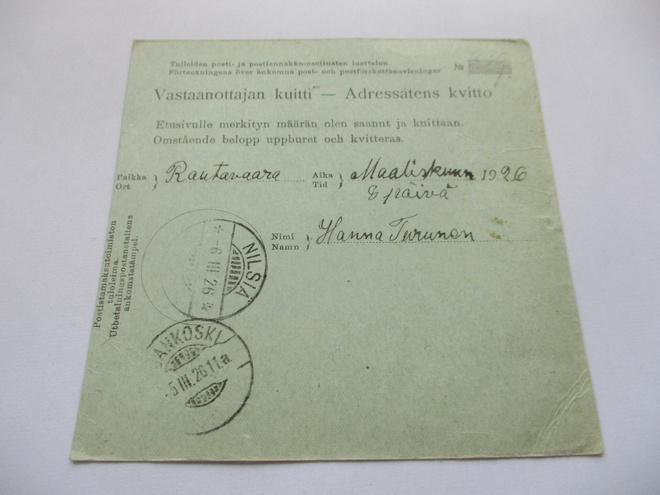 Tulleiden posti- ja postiennakko-osoitusten luettelon
Förteckningens över ankomna post- och postförskottsanvisningar
№
Vastaanottajan kuitti — Adressatens kvitto
Etusivulle merkityn määrän olen saanut ja kuittaan.
Omstående belopp uppburet och kvitteras.
Paikka
Ort
Rautavaara
Aika
Tid
Maaliskuun 1926
8 päivä
Nimi
Namn
Hanna Turunen
Postistamaksutoimiston
tuloleima.
Utbetalningspostanstaltens
ankomststämpel.
NILSIÄ
* -6 III 26 *
ANKOSKI
-5 III. 26 11 a